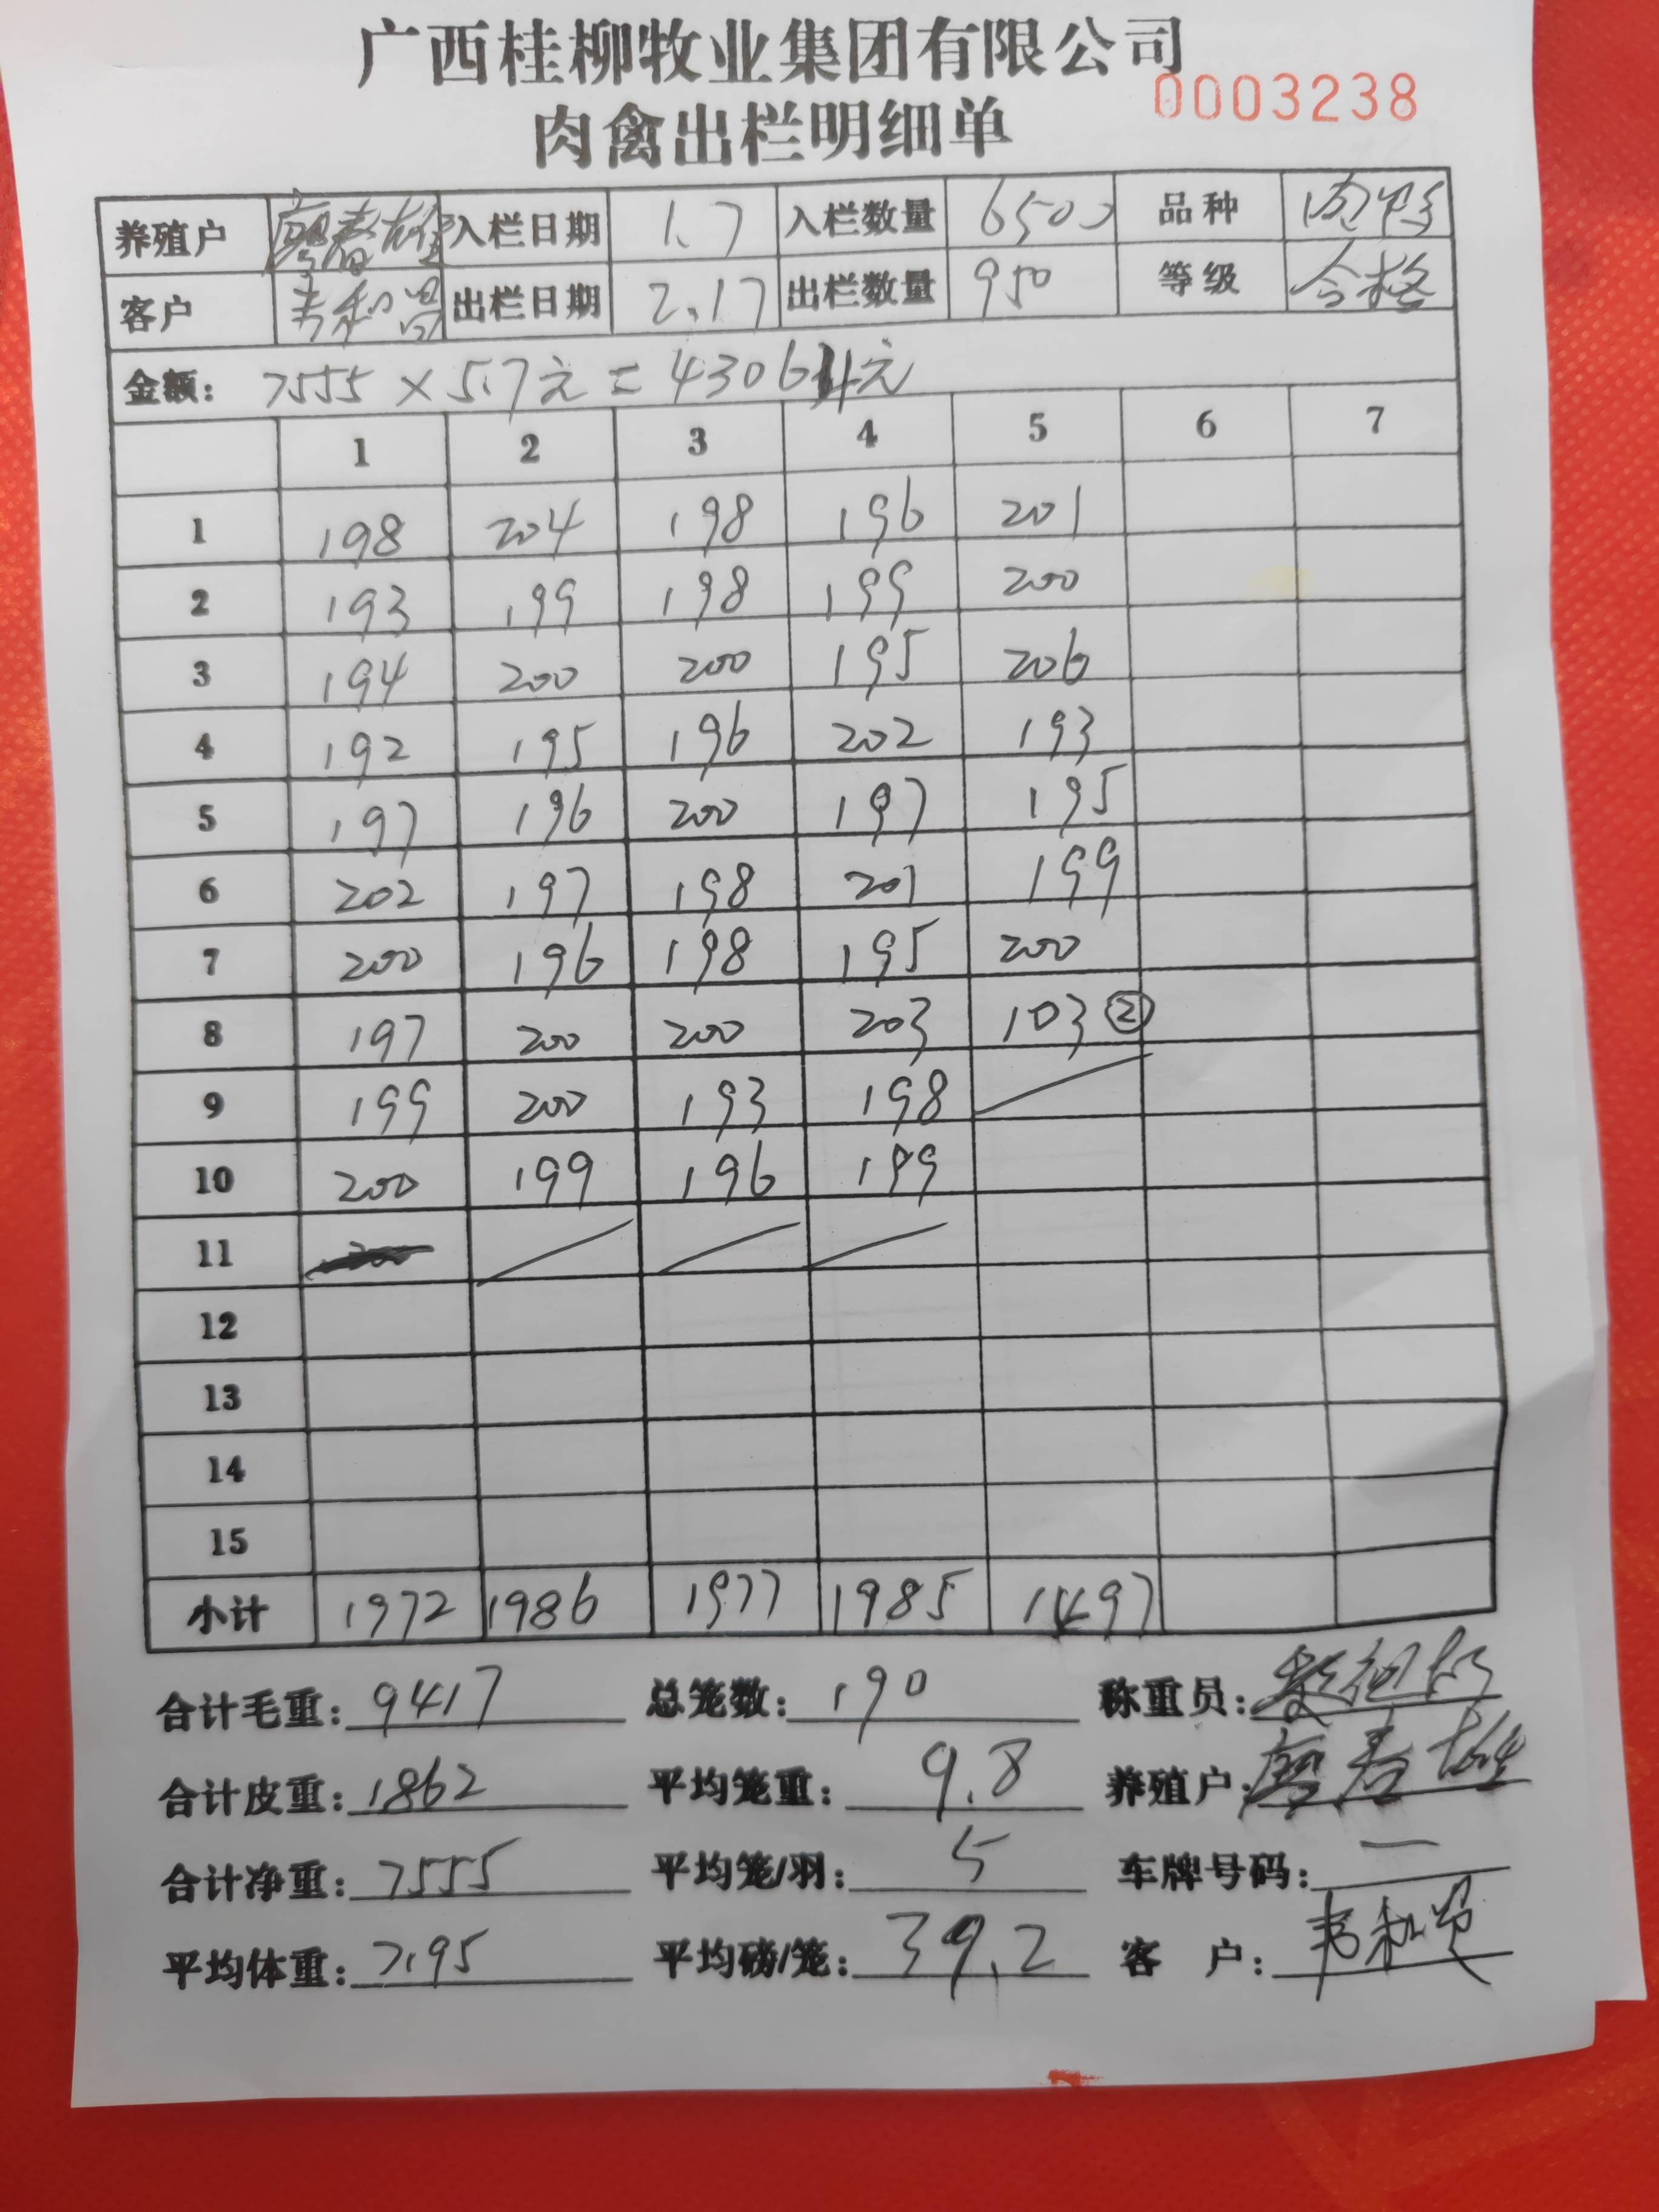 广西桂柳牧业集团有限公司
0003238
肉禽出栏明细单
养殖户 廖春雄 入栏日期 1.7 入栏数量 6500 品种 肉鸭
客户 韦和 出栏日期 2.17 出栏数量 950 等级 合格
金额: 7555 × 5.7元 = 43064元
1 2 3 4 5 6 7
1 198 204 198 196 201
2 193 199 198 199 200
3 194 200 200 195 206
4 192 195 196 202 193
5 197 196 200 197 195
6 202 197 198 201 199
7 200 196 198 195 200
8 197 200 200 203 103 ②
9 199 200 193 198
10 200 199 196 199
11
12
13
14
15
小计 1972 1986 1977 1985 1497
合计毛重: 9417 总笼数: 190 称重员:
合计皮重: 1862 平均笼重: 9.8 养殖户: 廖春雄
合计净重: 7555 平均笼/羽: 5 车牌号码: 一
平均体重: 7.95 平均磅/笼: 39.2 客 户: 韦和